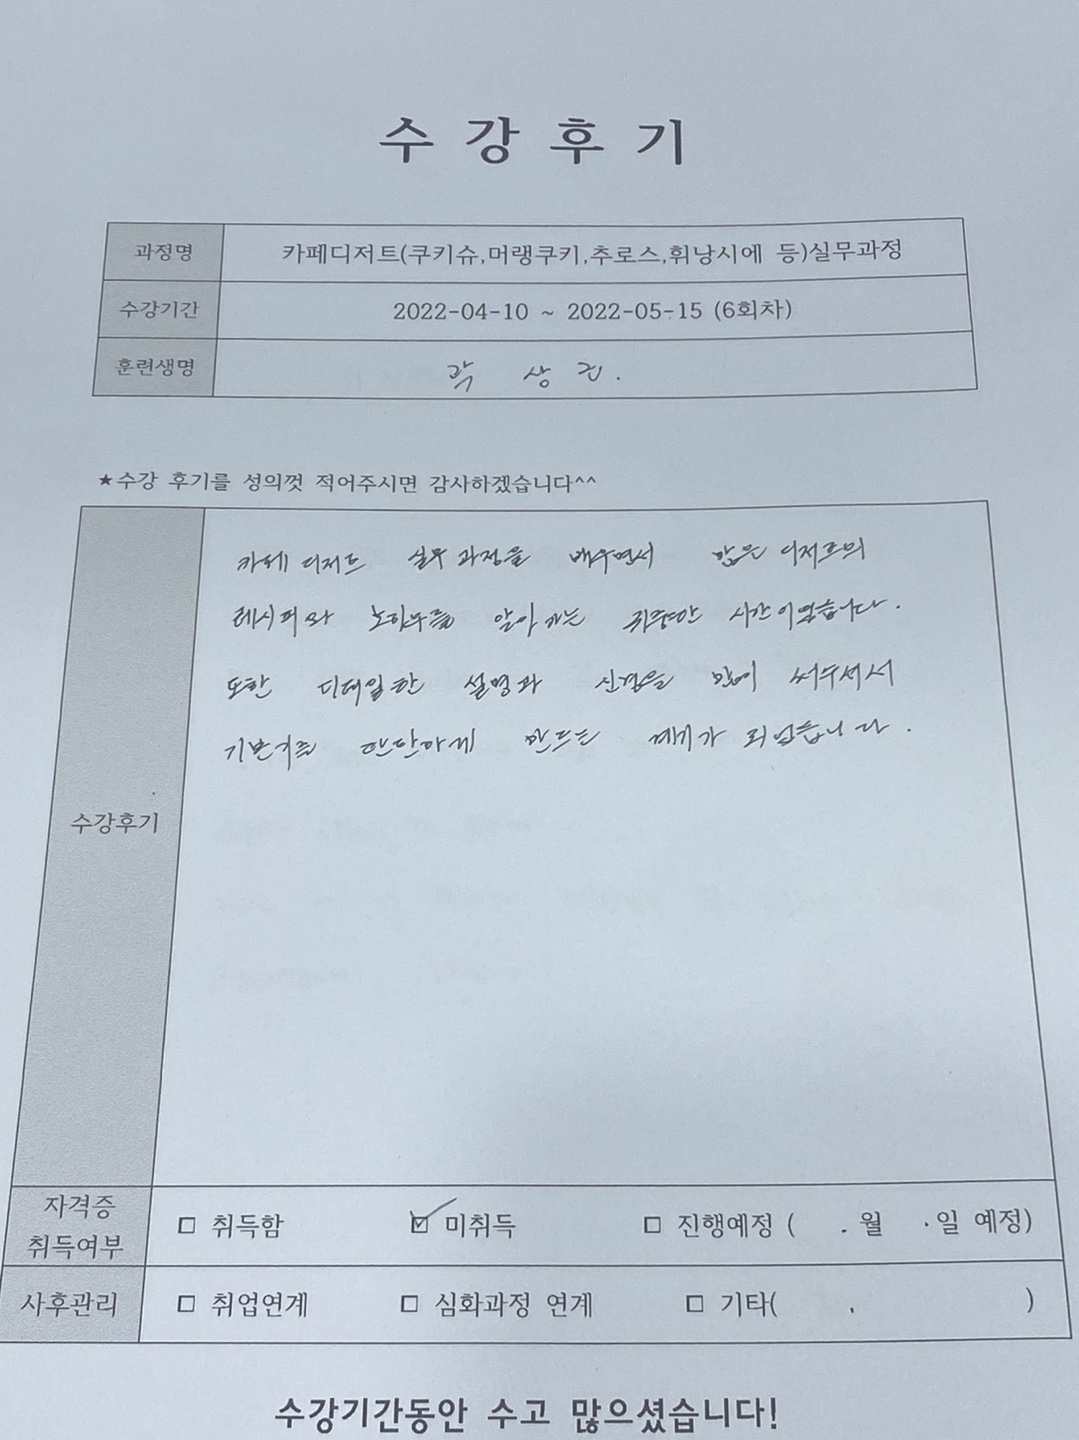 수강후기
과정명 카페디저트(쿠키슈,머랭쿠키,추로스,휘낭시에 등)실무과정
수강기간 2022-04-10 ~ 2022-05-15 (6회차)
훈련생명 곽 상 진.
★수강 후기를 성의껏 적어주시면 감사하겠습니다^^
수강후기
카페 디저트 실무 과정을 배우면서 많은 디저트의
레시피와 노하우를 알아 가는 귀중한 시간이였습니다.
또한 디테일한 설명과 신경을 많이 써주셔서
기본기를 탄탄하게 만드는 계기가 되었습니다.
자격증 취득여부 □ 취득함 ☑ 미취득 □ 진행예정 ( . 월 .일 예정)
사후관리 □ 취업연계 □ 심화과정 연계 □ 기타( . )
수강기간동안 수고 많으셨습니다!